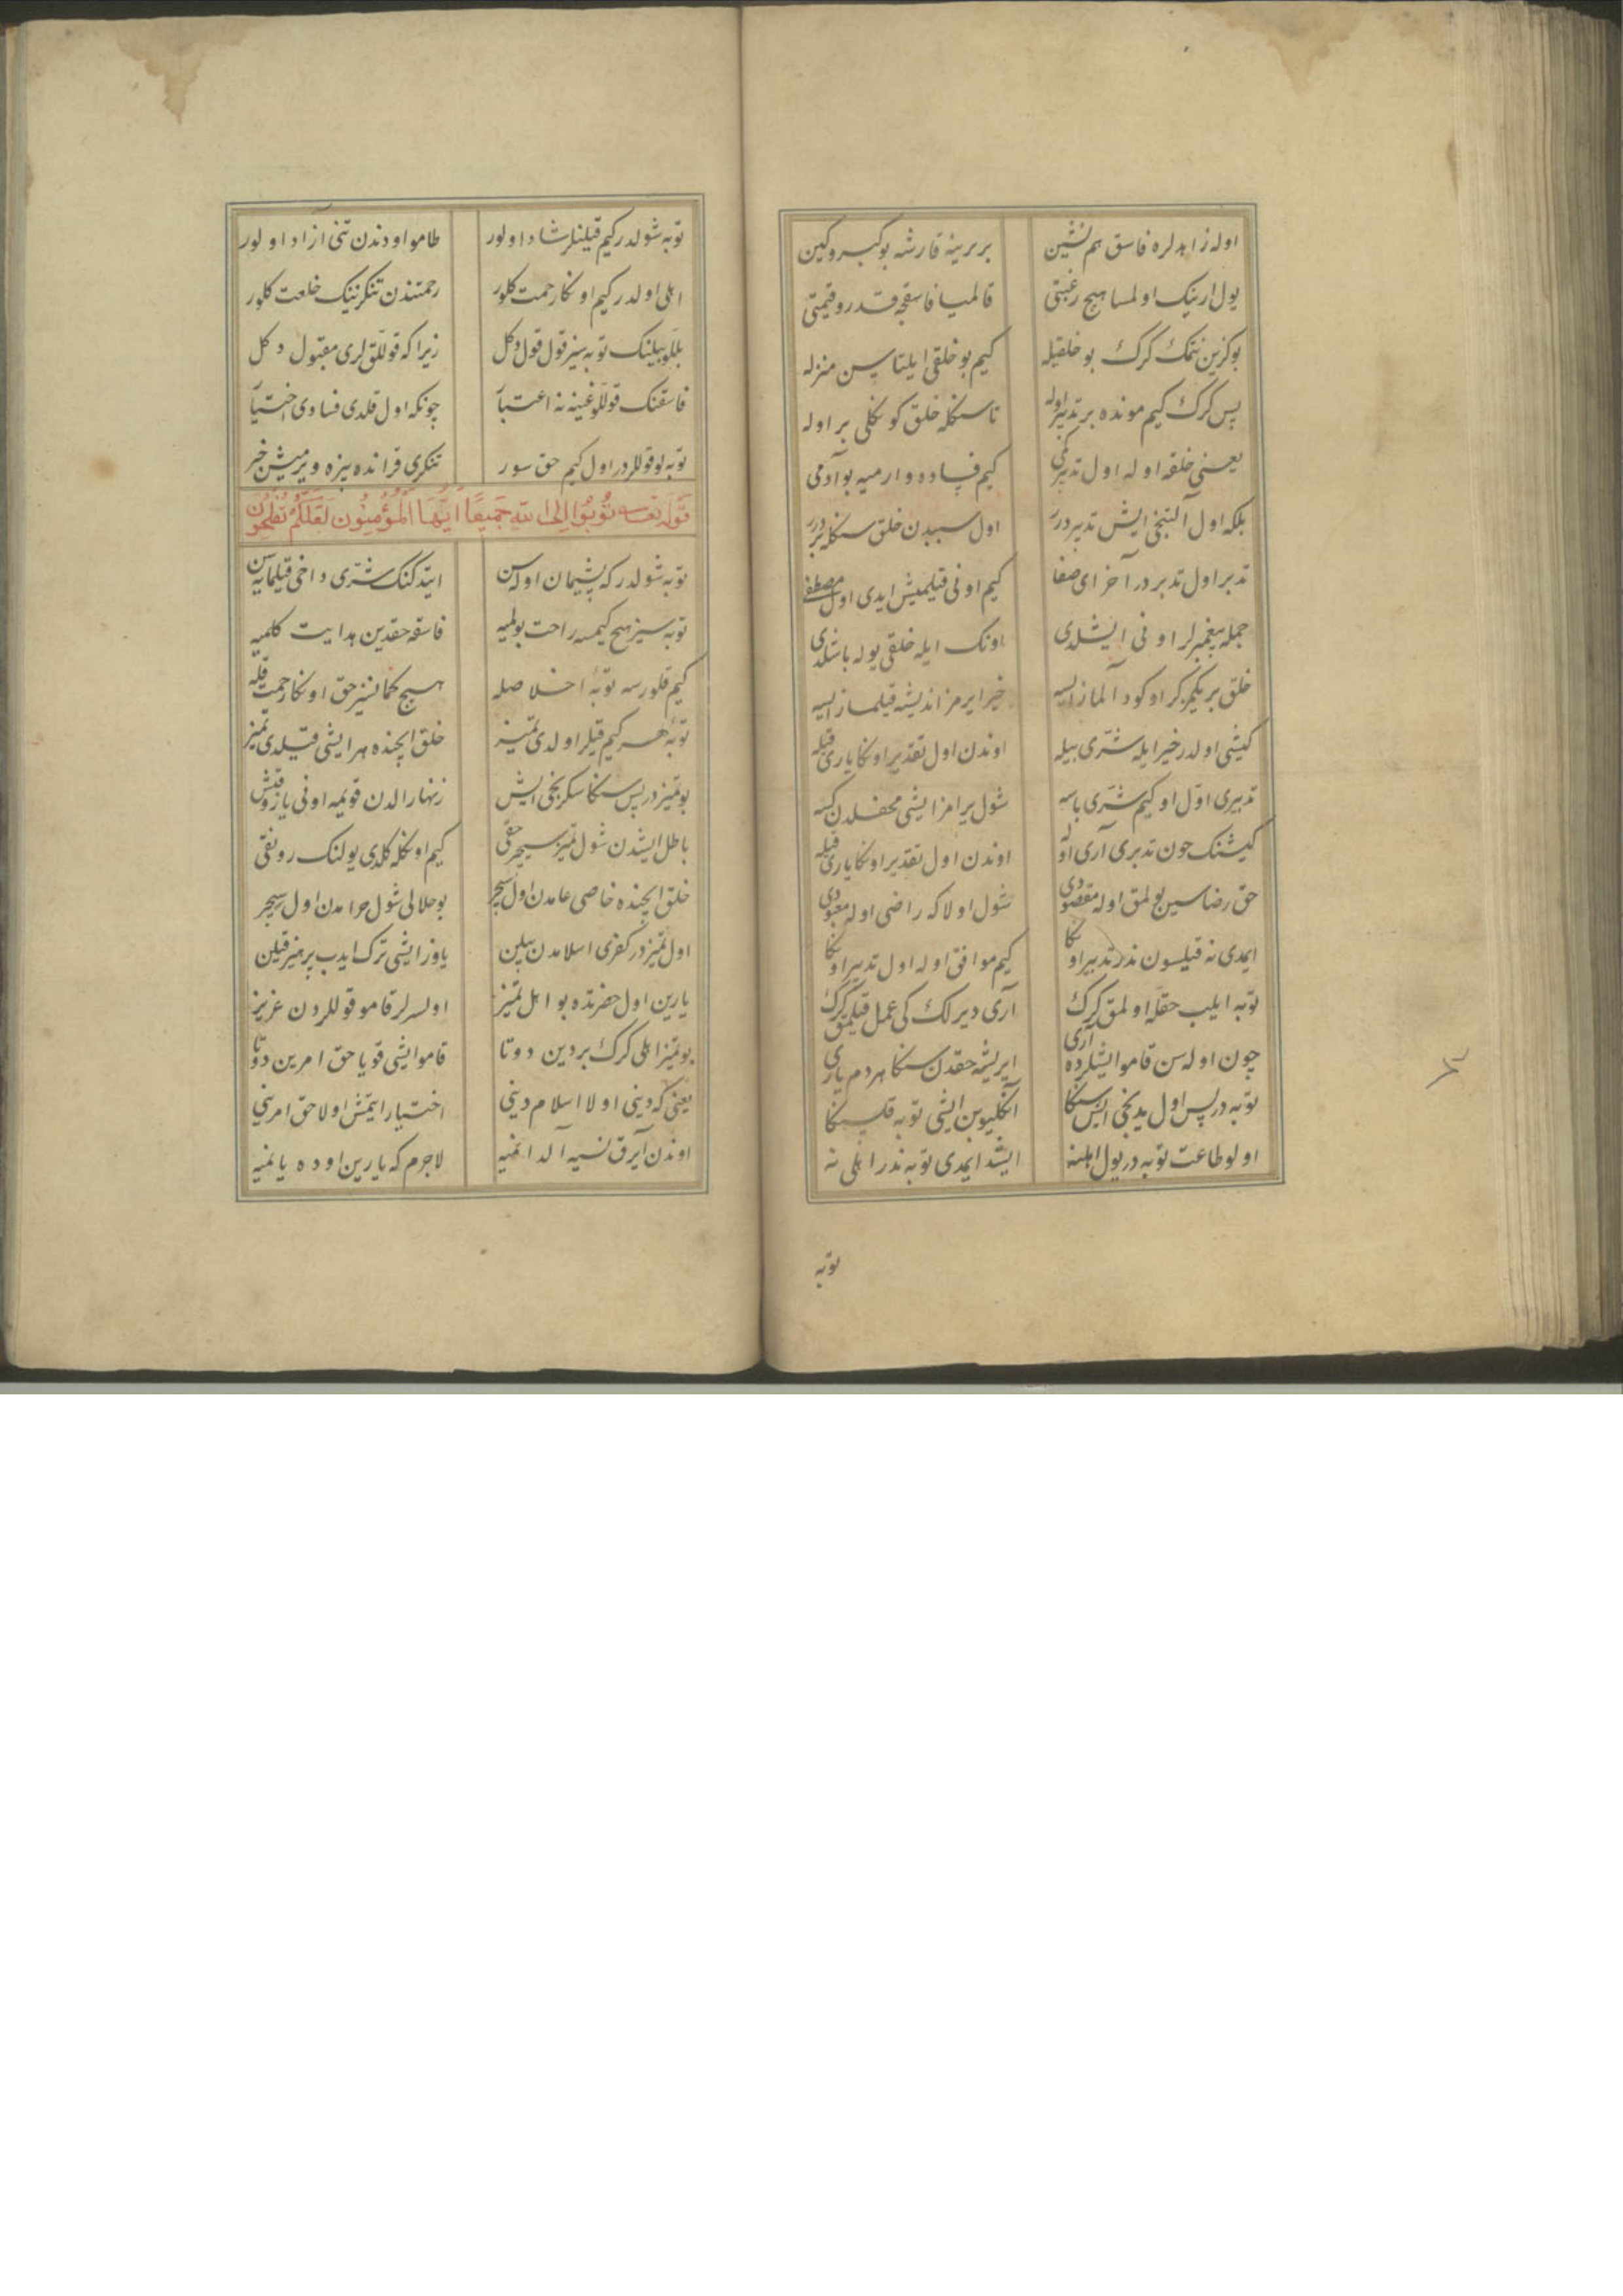 اوله زاهدلره فاسق هم نشین بر برینه قارشه بو کبر و کین
یول ارینک اولمسا هیچ رغبتی قالمیا فاسقجه قدر و قیمتی
بو کزین نتمک کرک بو خلقیله کیم بو خلقی ایلتاسین منزله
پس کرک کیم مونده بر تدبیر اوله تا سنکله خلق کوکلی بر اوله
یعنی خلقه اوله اول تدبیر کمی کیم فساده وارمیه بو آدمی
بلکه اول آلتنجی ایش تدبیردرر اول سببدن خلق سنکله بردرر
تدبر اول تدبر در آخر ای صفا کیم اونی قیلمیش ایدی اول مصطفی
جمله پیغمبرلر اونی ایشلدی اونک ایله خلقی یوله باشلدی
خلق بر یکمرکر اوکود آلماز ایسه خیر ایرمز اندیشه قیلماز ایسه
کیشی اولدر خیر ایله شری بیله اوندن اول تقدیر اونکا یاری قیله
تدبیری اول او کیم شری باسه شول یرامز ایشی محفلدن کسه
کیشنک چون تدبری آری اوله اوندن اول تقدیر اونکا یاری قیله
حق رضاسین بولمق اوله مقصودی شول اولا که راضی اوله معبودی
ایمدی نه قیلسون نذر تدبیر اونکا کیم موافق اوله اول تدبیر اونکا
توبه ایلیب حقله اولمق کرک آری دیرلک کی عمل قیلمق کرک
چون اوله سن قامو ایشلرده آری ایریشه حقدن سنکا هردم یاری
توبه درپس اول یدنجی ایش سنکا انکلیوبن ایشی توبه قل سنکا
اولو طاعت توبه در یول اهلنه ایشد ایمدی توبه نذر اهلی نه
توبه
توبه شولدر کیم قیلنلر شاد اولور طامو اودندن تنی آزاد اولور
اهلی اولدر کیم اونکا رحمت کلور رحمتندن تنکرینک خلعت کلور
بللو بیلنک توبه سیز قول قول دکل زیرا که قوللق لری مقبول دکل
فاسقنک قوللوغینه نه اعتبار چونکه اول قلدی فسادی اختیار
توبه لو قوللردر اول کیم حق سور تنکری قرانده بیزه ویرمیش خبر
قوله تعالی تُوبُوا اِلَی اللّٰهِ جَمِیعًا اَیُّهَا الْمُؤْمِنُونَ لَعَلَّکُمْ تُفْلِحُونَ
توبه شولدر که پشیمان اوله سن ایتدکنک شری داخی قیلمایه سن
توبه سیز هیچ کیمسه راحت بولمیه فاسقه حقدین هدایت کلمیه
کیم قلورسه توبهٔ اخلاصله هیچ کمانسیز حق اونکا رحمت قله
توبهٔ هر کیم قیلر اولدی تمیز خلق ایچنده هر ایشی قیلدی تمیز
بو تمیزدر پس سنکا سکزنجی ایش زنهار الدن قویمه اونی یاز و قیش
باطل ایشدن شول تمیز سیچر حقی کیم اونکله کلدی یولنک رونقی
خلق ایچنده خاصی عامدن اول سیچر بو حلالی شول حرامدن اول سیچر
اول تمیزدر کفری اسلامدن بیلن یاوز ایشی ترک ایدب پرهیز قیلن
یارین اول حضرتده بو اهل تمیز اولسرلر قامو قوللردن عزیز
بو تمیز اهلی کرک بر دین دوتا قامو ایشی قویا حق امرین دوتا
یعنی که دینی اولا اسلام دینی اختیار ایتمش اولا حق امرینی
اوندن آیرق نسیه آلدانمیه لاجرم که یارین اوده یانمیه